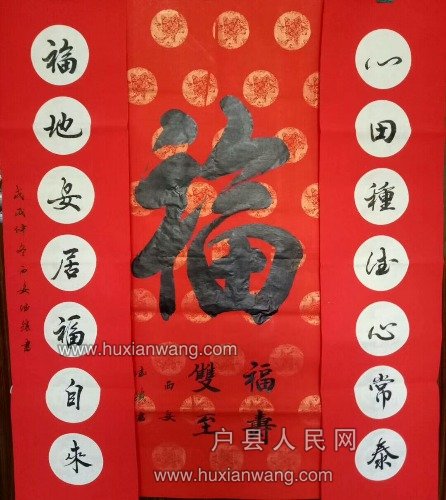 心田種德心常泰
福
福壽
雙全
西安
福地安居福自來
戊戌仲冬西安
www.huxianwang.com
www.huxianwang.com
户县人民网
www.huxianwang.com